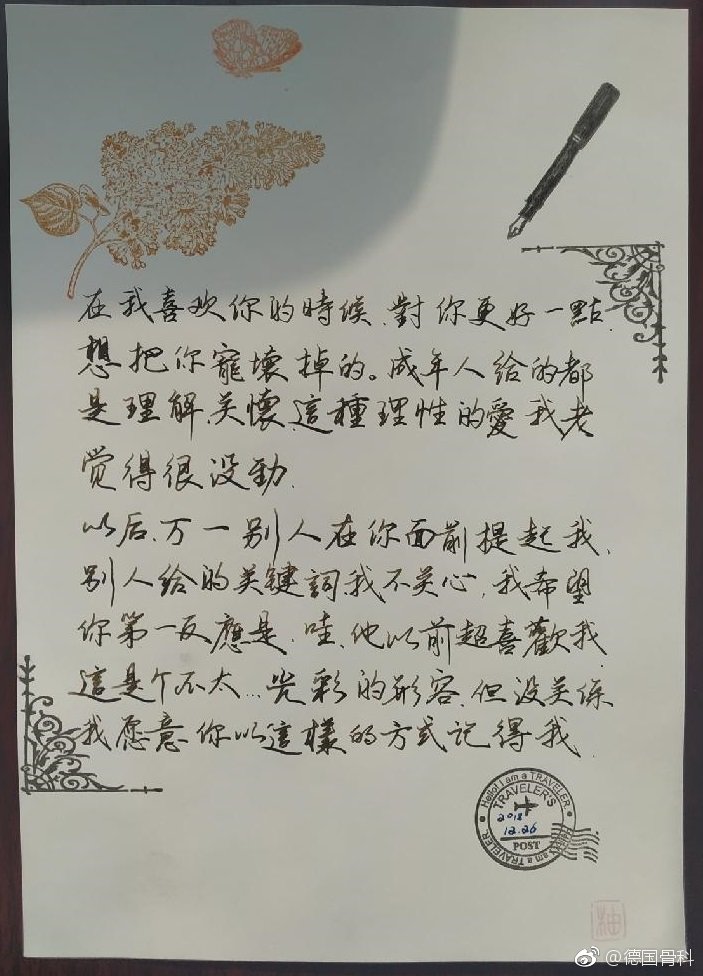 在我喜欢你的時候.對你更好一點.
想把你寵壞掉的。成年人给的都
是理解、关懷.這種理性的愛我老
觉得很没勁.
以后、万一别人在你面前提起我、
别人给的关鍵詞我不关心.我希望
你第一反應是.哇、他以前超喜歡我
這是个不太...光彩的形容.但没关係
我愿意你以這樣的方式记得我.
Hello! I am a TRAVELER.
TRAVELER'S
2018
12.26
POST
I am a TRAVELER.
@德国骨科